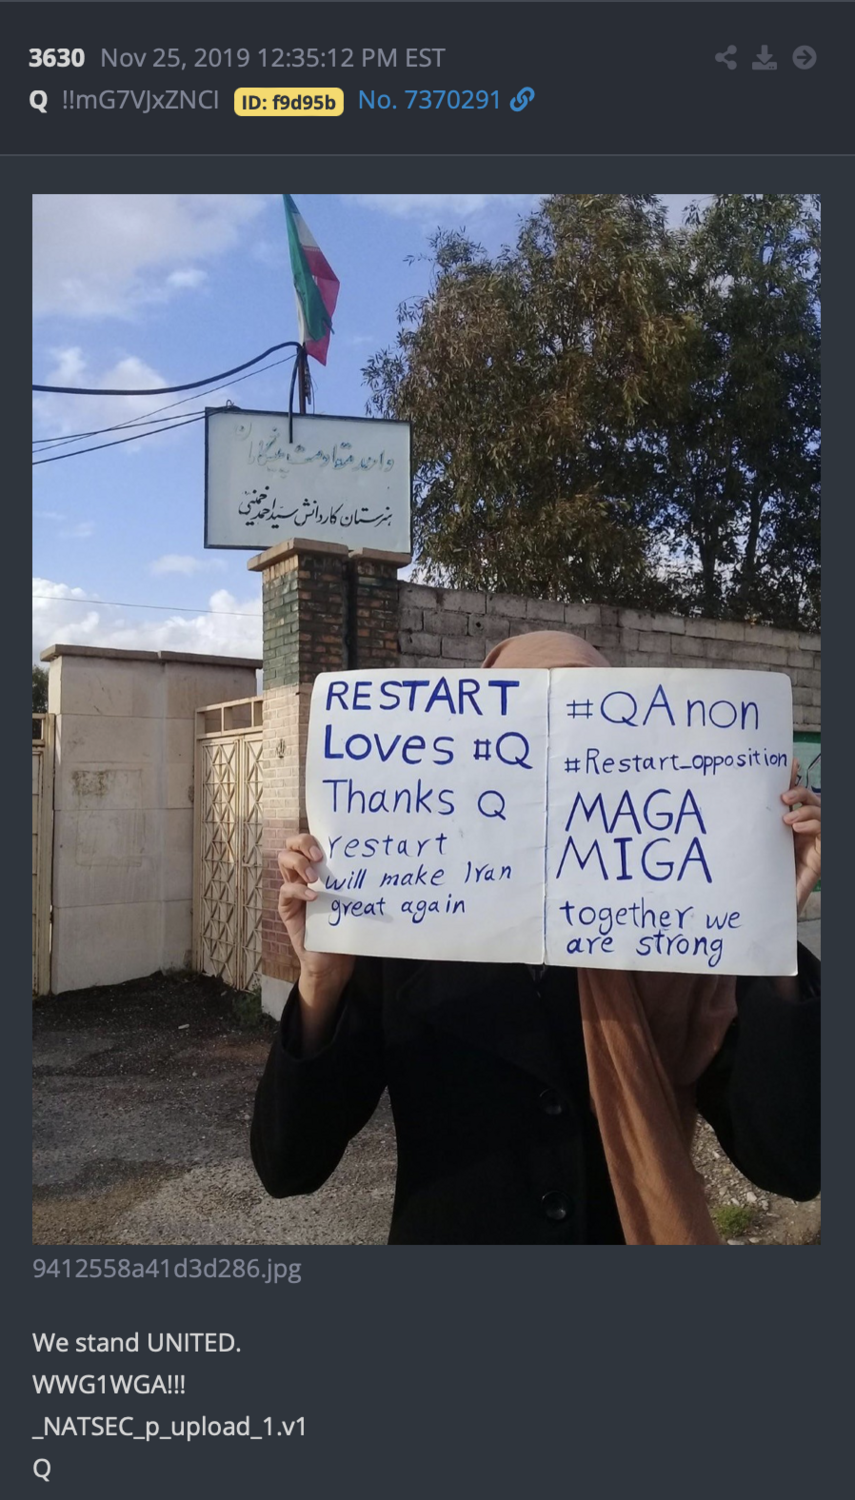 3630 Nov 25, 2019 12:35:12 PM EST
Q !!mG7VJxZNCI ID: f9d95b No. 7370291
واحد مقاومت بسیج
هنرستان کاردانش سید احمد خمینی
RESTART
Loves #Q
Thanks Q
restart
will make Iran
great again
#QAnon
#Restart_opposition
MAGA
MIGA
together we
are strong
9412558a41d3d286.jpg
We stand UNITED.
WWG1WGA!!!
_NATSEC_p_upload_1.v1
Q